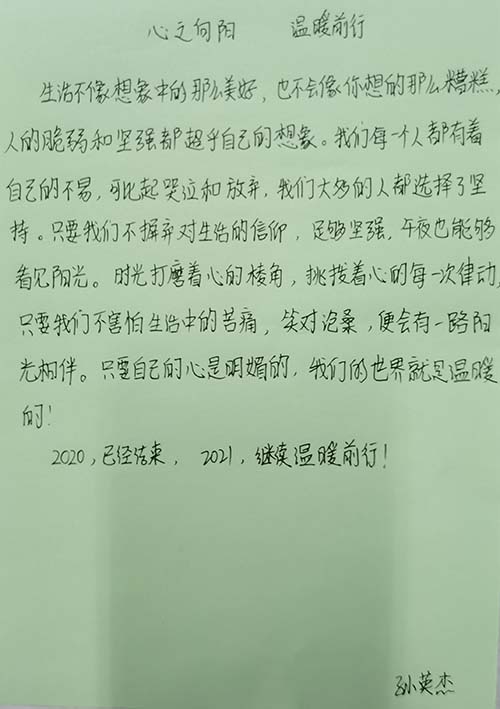 心之向阳 温暖前行
生活不像想象中的那么美好，也不会像你想的那么糟糕，
人的脆弱和坚强都超乎自己的想象。我们每一个人都有着
自己的不易，可比起哭泣和放弃，我们大多的人都选择了坚
持。只要我们不摒弃对生活的信仰，足够坚强，午夜也能够
看见阳光。时光打磨着心的棱角，挑拨着心的每一次律动，
只要我们不害怕生活中的苦痛，笑对沧桑，便会有一路阳
光相伴。只要自己的心是明媚的，我们的世界就是温暖
的！
2020，已经结束，2021，继续温暖前行！
孙英杰